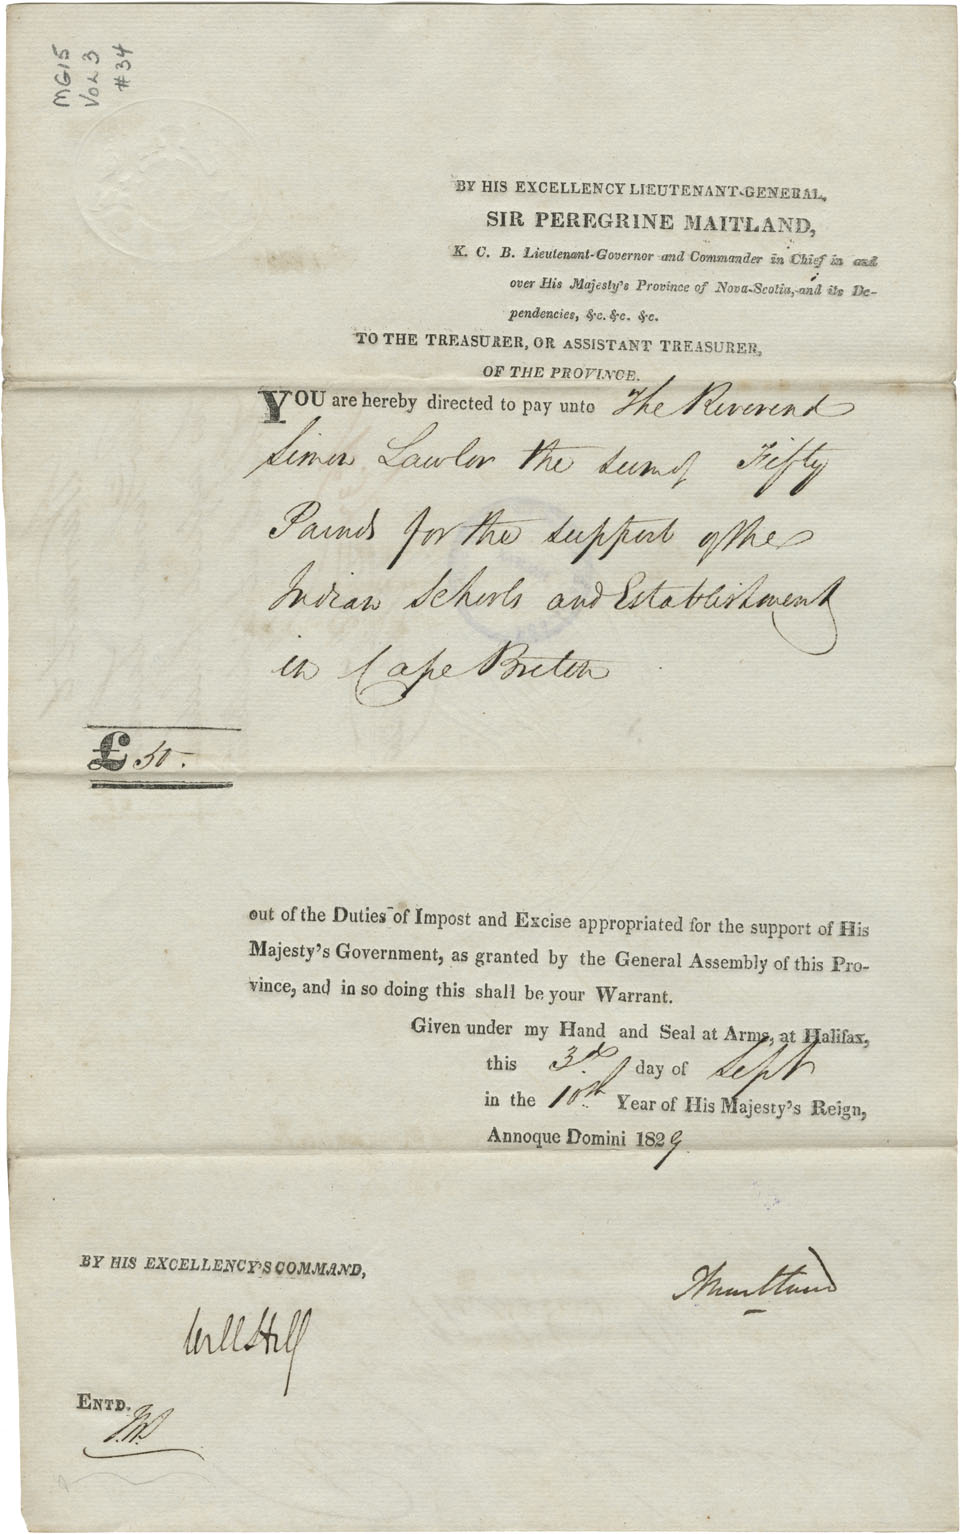 MG15
Vol 3
#34
BY HIS EXCELLENCY LIEUTENANT-GENERAL,
SIR PEREGRINE MAITLAND,
K. C. B. Lieutenant-Governor and Commander in Chief in and
over His Majesty's Province of Nova-Scotia, and its De-
pendencies, &c. &c. &c.
TO THE TREASURER, OR ASSISTANT TREASURER,
OF THE PROVINCE.
YOU are hereby directed to pay unto The Reverend
Simon Lawlor the sum of Fifty
Pounds for the support of the
Indian Schools and Establishment
in Cape Breton
£ 50 -.
out of the Duties of Impost and Excise appropriated for the support of His
Majesty's Government, as granted by the General Assembly of this Pro-
vince, and in so doing this shall be your Warrant.
Given under my Hand and Seal at Arms, at Halifax,
this 3d day of Sept
in the 10th Year of His Majesty's Reign,
Annoque Domini 1829
BY HIS EXCELLENCY'S COMMAND,
PMaitland
Will Hill
ENTD.